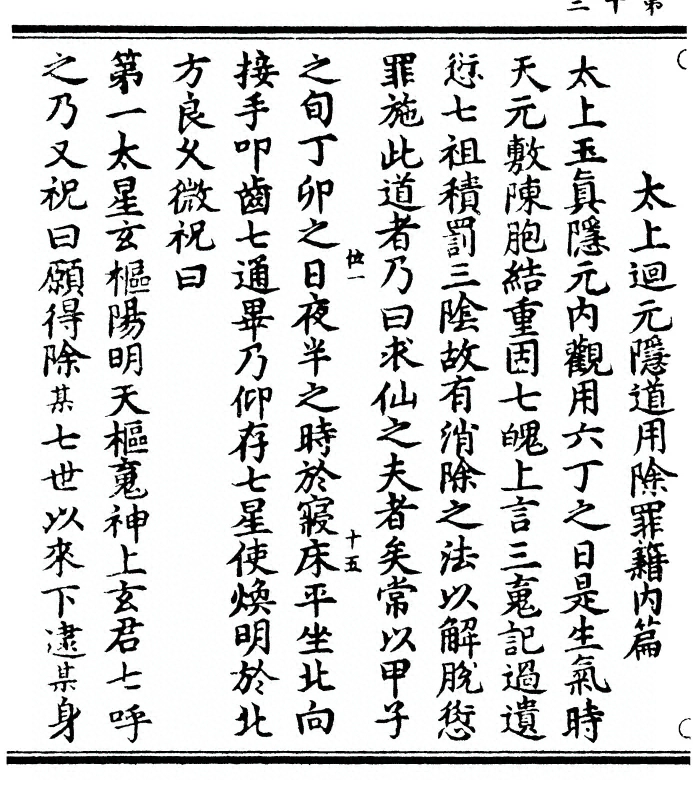 第十三
太上迴元隱道用除罪籍內篇
太上玉眞隱元內觀用六丁之日是生氣時
天元敷陳胞結重固七魄上言三䰟記過遺
愆七祖積罰三陰故有消除之法以解脫愆
罪施此道者乃曰求仙之夫者矣常以甲子
之旬丁卯之日夜半之時於寢床平坐北向
接手叩齒七通畢乃仰存七星使煥明於北
方良乆微祝曰
第一太星玄樞陽明天樞䰟神上玄君七呼
之乃又祝曰願得除某七世以來下逮某身
位一
十五